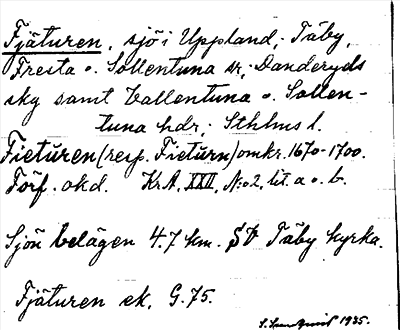 Fjäturen, sjö i Uppland; Täby,
Fresta o. Sollentuna sr; Danderyds
skg samt Vallentuna o. Sollen-
tuna hdr; Sthlms l.
Fieturen (resp. Fieturn) omkr. 1670-1700.
Förf. okd. Kr.A. XXII, N:o 2, lit. a o. b.
Sjön belägen 4.7 km. SV Täby kyrka.
Fjäturen ek. G.75.
1935.